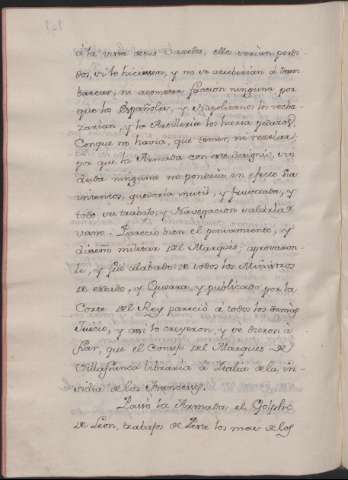 á la vista de su Ciudad, ellos verían perdi-
dos, si lo hiciesen, y no se atreberian á desem-
barcar, ni acometer faccion ninguna por
que los Españoles, y Napolitanos los recha-
zarian, y la Artilleria los haria pedazos.
Conque no havia, que temer, ni recelar,
ya que la Armada con ese designio, sin
duda ninguna no pondria en efecto sus
intentos, quedaria inutil, y frustrada, y
todo su trabajo, y Navegacion saldria
vano. Pareció bien el pensamiento, y
diseño militar del Marqués; aprovaron-
le, y fué alabado de todos los Ministros
de estado, y Guerra, y publicado por la
Corte del Rey pareció á todos los demas
Juicio, y assi lo creyeron, y se dieron á
fiar, que el Consejo del Marques de
Villafranca libraria á Italia de la in-
vidia de los Franceses.
Passó la Armada el Golpho
de Leon, trabajos de Leste los mas de los